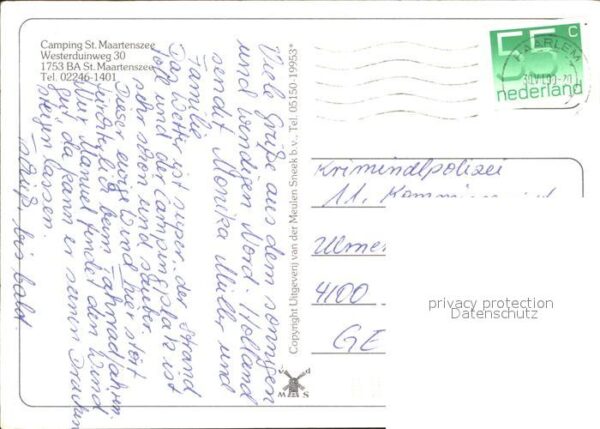 Camping St. Maartenszee
Westerduinweg 30
1753 BA St. Maartenszee
Tel. 02246-1401
Viele Grüße aus dem sonnigen
und windigen Nord-Holland
sendet Monika Müller und
Familie.
Das Wetter ist super. der Strand
toll und der Campingplatz ist
sehr schön und sauber.
Dieser ewige Wind hier stört
fürchterlich beim Fahrradfahren.
Nur Manuel findet den Wind
gut, da kann er seinen Drachen
steigen lassen.
bis bald
Copyright Uitgeverij van der Meulen Sneek b.v., Tel. 05150-19953*
v d
W M S
55 c
nederland
HAARLEM
Kriminalpolizei
11.
4100
GE
privacy protection
Datenschutz